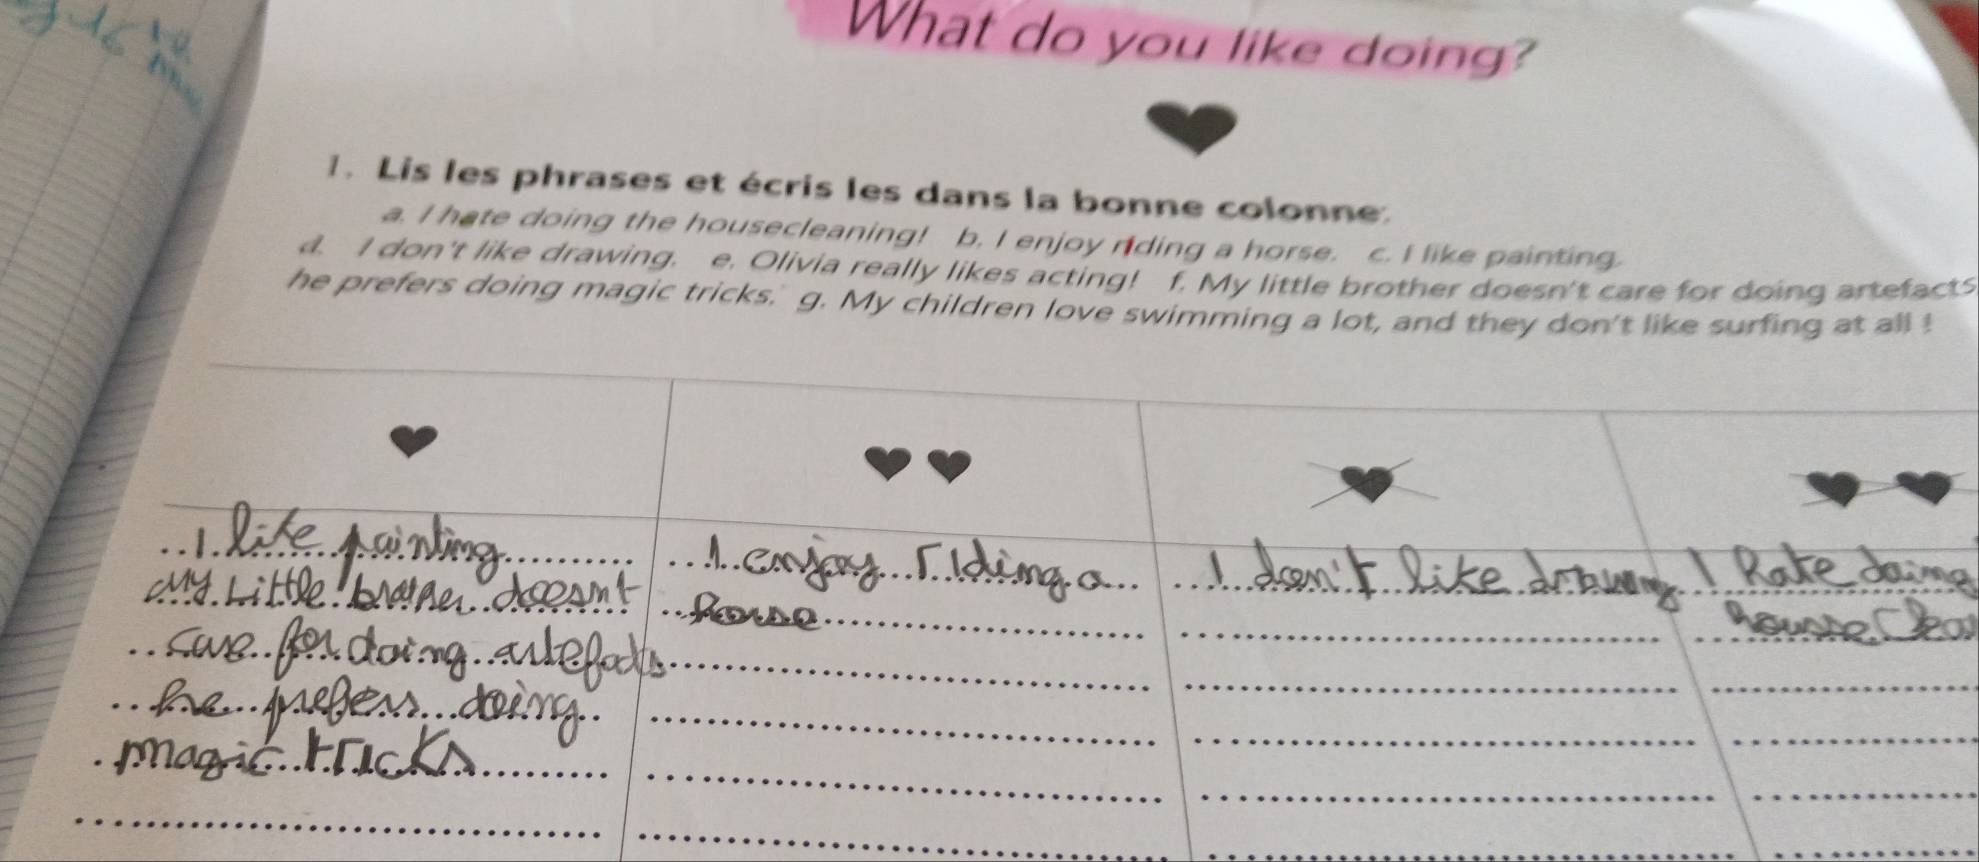 What do you like doing?
1. Lis les phrases et écris les dans la bonne colonne.
a. I hate doing the housecleaning! b. I enjoy riding a horse. c. I like painting.
d. I don't like drawing. e. Olivia really likes acting! f. My little brother doesn't care for doing artefacts
he prefers doing magic tricks. g. My children love swimming a lot, and they don't like surfing at all !
I like painting
My Little brother doesn't
care for doing artefacts
he prefers doing
magic tricks
I enjoy riding a
horse
I don't like drawing
I hate doing
house clea